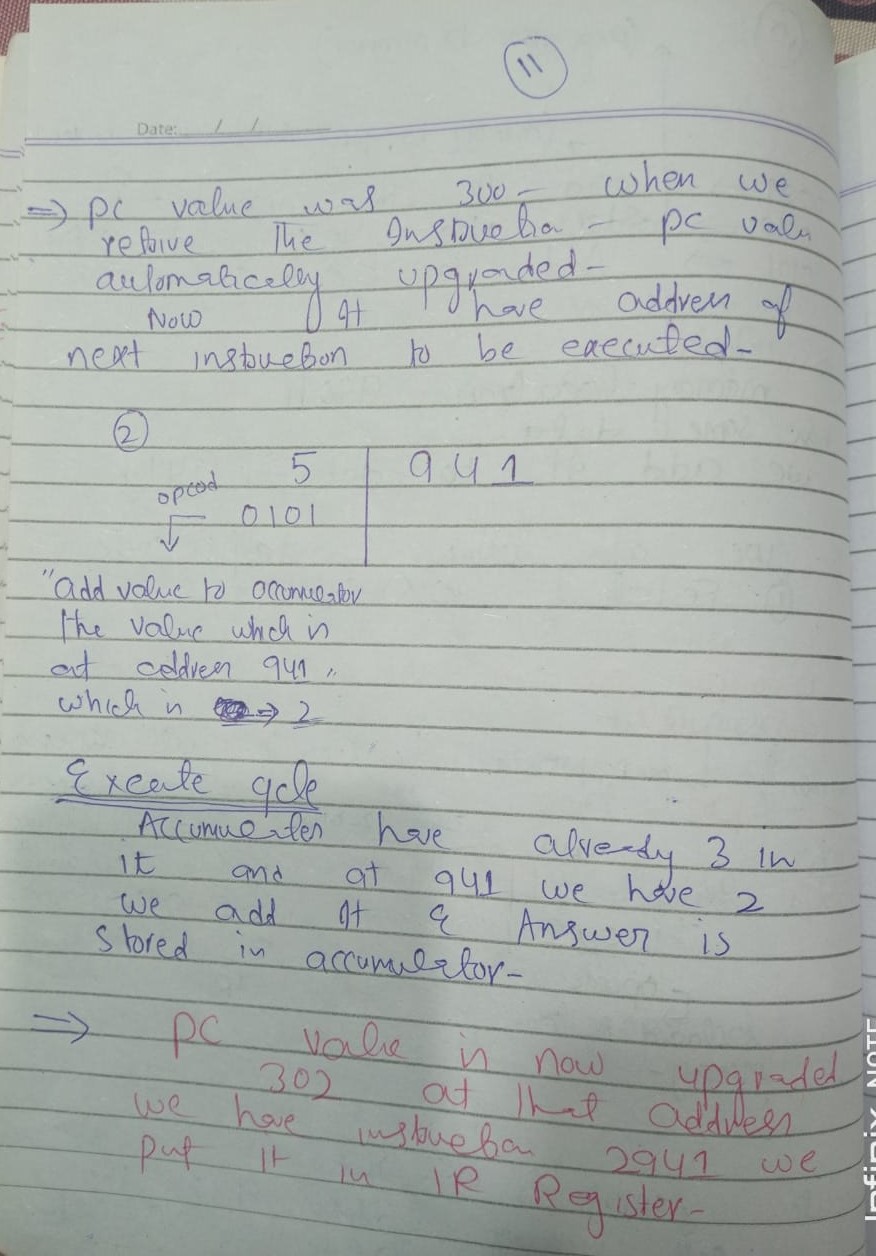 11
Date: / /
⇒ PC value was 300 - when we
retrive The Instruction - PC value
automatically upgraded -
Now It have address of
next instruction to be executed -
2
5 | 941
opcod
0101
"add value to accumulator
the value which is
at address 941 "
which is ⇒ 2
Execute cycle
Accumulator have already 3 in
it and at 941 we have 2
we add It & Answer is
stored in accumulator -
⇒ PC value is now upgraded
302 at that address
we have instruction 2941 we
put It in IR Register -
Infinix NOTE